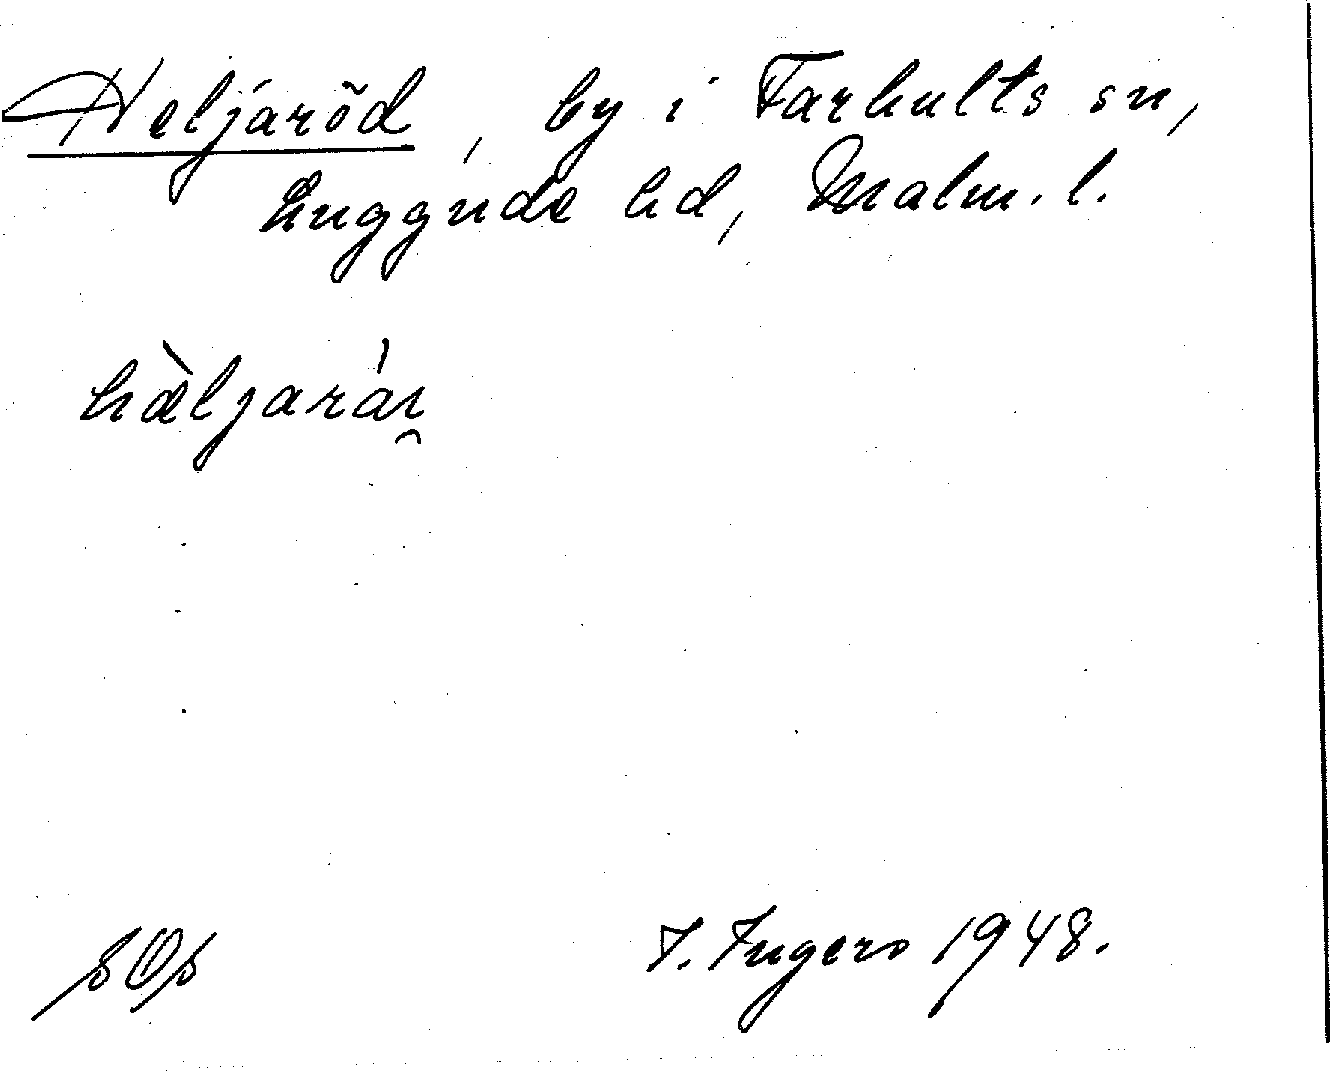 Heljaröd, by i Farhults sn,
Luggude hd, Malm. l.
hæ̀ljarár
I. Ingers 1948.